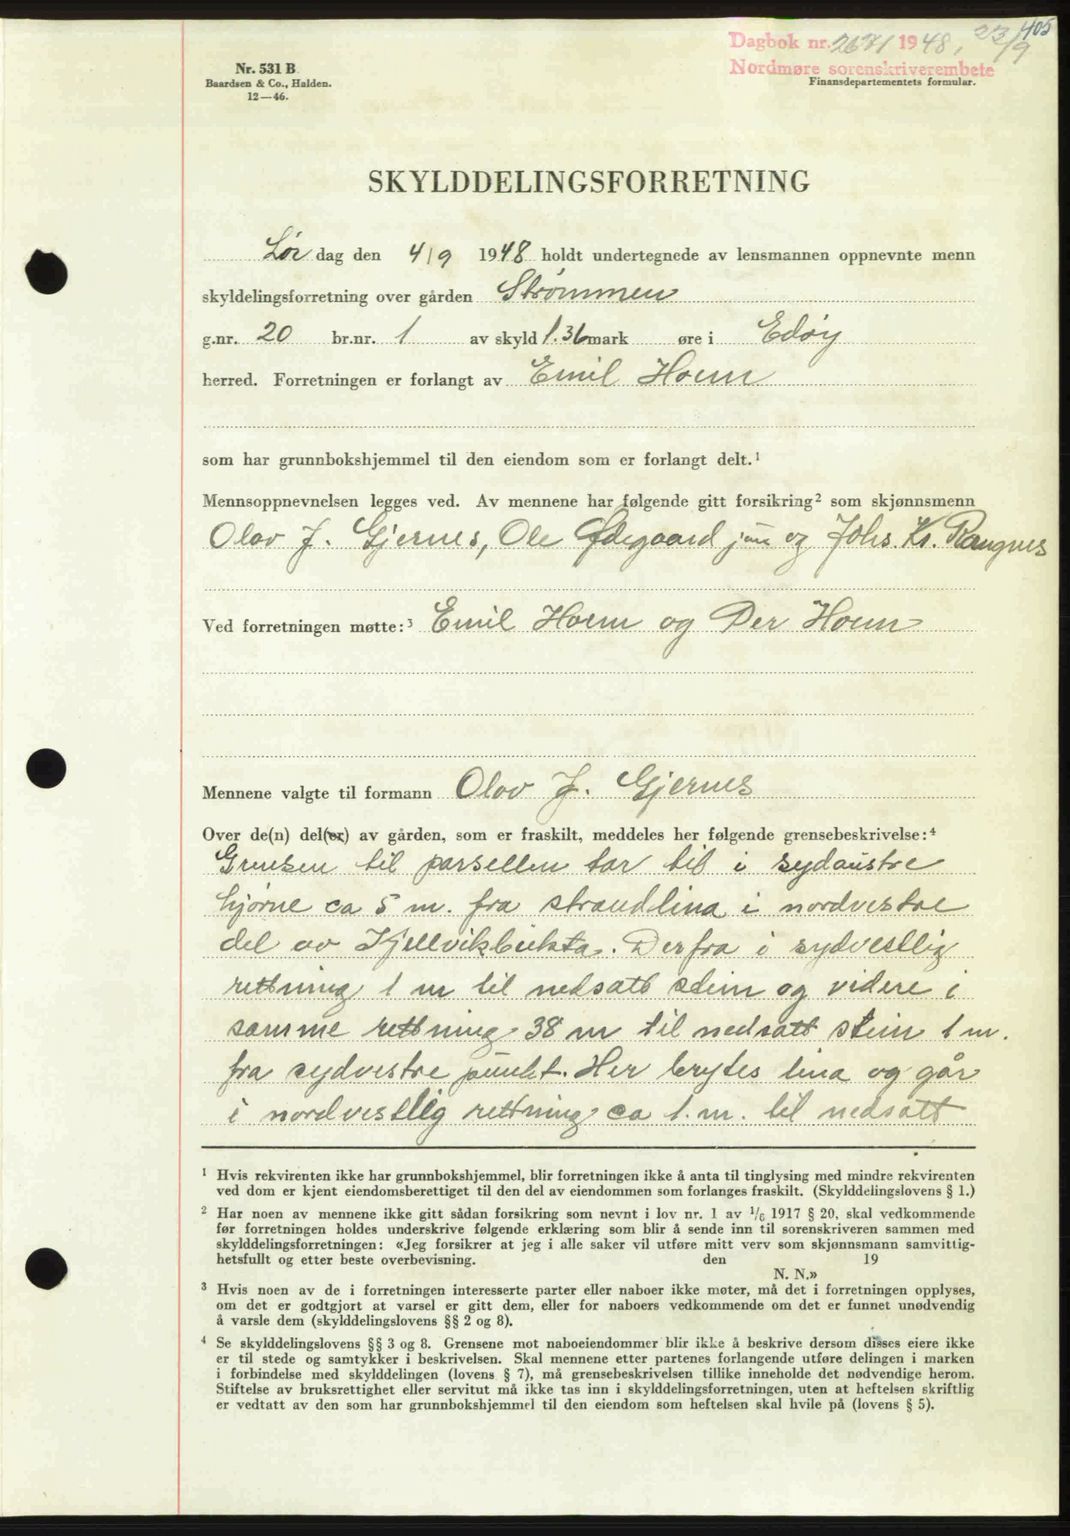 405
Dagbok nr. 2671 1948, 23/9
Nordmøre sorenskriverembete
Nr. 531 B
Baardsen & Co., Halden.
12—46.
Finansdepartementets formular.
SKYLDDELINGSFORRETNING
Lør dag den 4/9 1948 holdt undertegnede av lensmannen oppnevnte menn
skyldelingsforretning over gården Strømmen
g.nr. 20 br.nr. 1 av skyld 1.36 mark øre i Edøy
herred. Forretningen er forlangt av Emil Hoem
som har grunnbokshjemmel til den eiendom som er forlangt delt.¹
Mennsoppnevnelsen legges ved. Av mennene har følgende gitt forsikring² som skjønnsmenn
Olav J. Gjernes, Ole Ødegaard jun og Johs. Kr. Rangnes
Ved forretningen møtte:³ Emil Hoem og Per Hoem
Mennene valgte til formann Olav J. Gjernes
Over de(n) del(er) av gården, som er fraskilt, meddeles her følgende grensebeskrivelse:⁴
Grensen til parsellen tar til i sydaustre
hjørne ca 5 m. fra strandlina i nordvestre
del av Kjellvikbukta. Derfra i sydvestlig
rettning 1 m til nedsatt stein og videre i
samme rettning 38 m til nedsatt stein 1 m.
fra sydvestre punkt. Her brytes lina og går
i nordvestlig rettning ca 1. m. til nedsatt
¹ Hvis rekvirenten ikke har grunnbokshjemmel, blir forretningen ikke å anta til tinglysing med mindre rekvirenten
ved dom er kjent eiendomsberettiget til den del av eiendommen som forlanges fraskilt. (Skylddelingslovens § 1.)
² Har noen av mennene ikke gitt sådan forsikring som nevnt i lov nr. 1 av 1/6 1917 § 20, skal vedkommende
før forretningen holdes underskrive følgende erklæring som blir å sende inn til sorenskriveren sammen med
skylddelingsforretningen: «Jeg forsikrer at jeg i alle saker vil utføre mitt verv som skjønnsmann samvittig-
hetsfullt og etter beste overbevisning. den 19
N. N.»
³ Hvis noen av de i forretningen interesserte parter eller naboer ikke møter, må det i forretningen opplyses,
om det er godtgjort at varsel er gitt dem, eller for naboers vedkommende om det er funnet unødvendig
å varsle dem (skylddelingslovens §§ 2 og 8).
⁴ Se skylddelingslovens §§ 3 og 8. Grensene mot naboeiendommer blir ikke å beskrive dersom disses eiere ikke
er til stede og samtykker i beskrivelsen. Skal mennene etter partenes forlangende utføre delingen i marken
i forbindelse med skylddelingen (lovens § 7), må grensebeskrivelsen tillike inneholde det nødvendige herom.
Stiftelse av bruksrettighet eller servitut må ikke tas inn i skylddelingsforretningen, uten at heftelsen skriftlig
er vedtatt av den som har grunnbokshjemmel til den eiendom som heftelsen skal hvile på (lovens § 5).